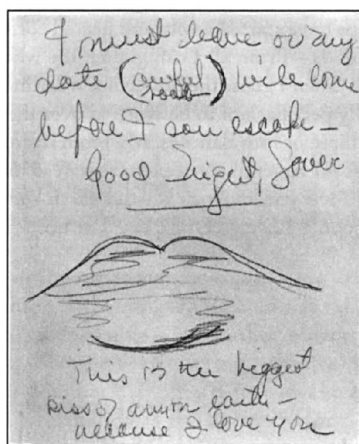 I must leave or my
date (awful) will come
before I can escape –
Good Night, Lover
This is the biggest
kiss of any on earth –
because I love you